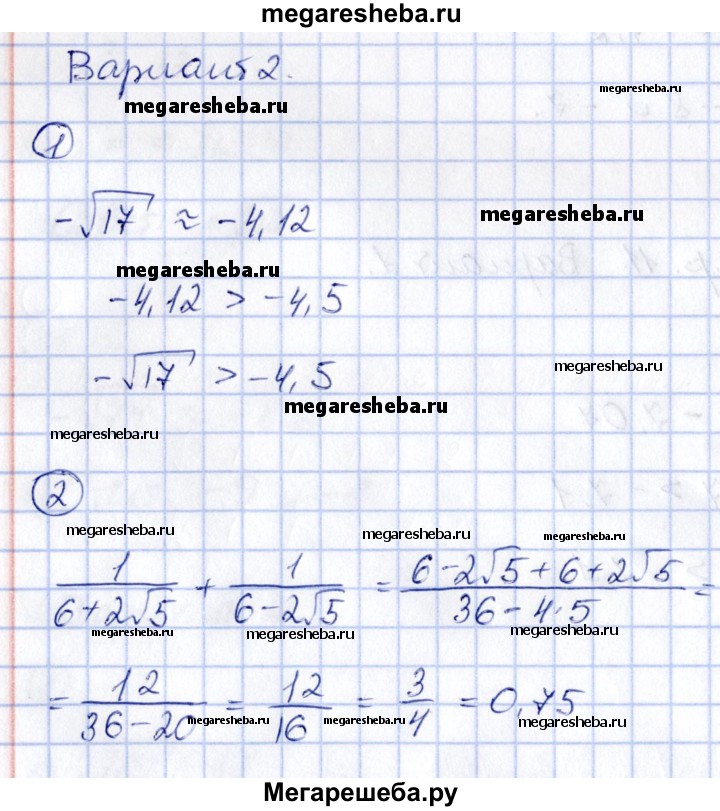 megaresheba.ru
Вариант 2.
megaresheba.ru
megaresheba.ru
1
-√17 ≈ -4,12
megaresheba.ru
megaresheba.ru
-4,12 > -4,5
-√17 > -4,5
megaresheba.ru
megaresheba.ru
megaresheba.ru
2
megaresheba.ru
megaresheba.ru
megaresheba.ru
1/(6+2√5) + 1/(6-2√5) = (6-2√5+6+2√5)/(36-4·5) =
megaresheba.ru
megaresheba.ru
megaresheba.ru
= 12/(36-20) = 12/16 = 3/4 = 0,75
megaresheba.ru
megaresheba.ru
megaresheba.ru
megaresheba.ru
Мегарешеба.ру